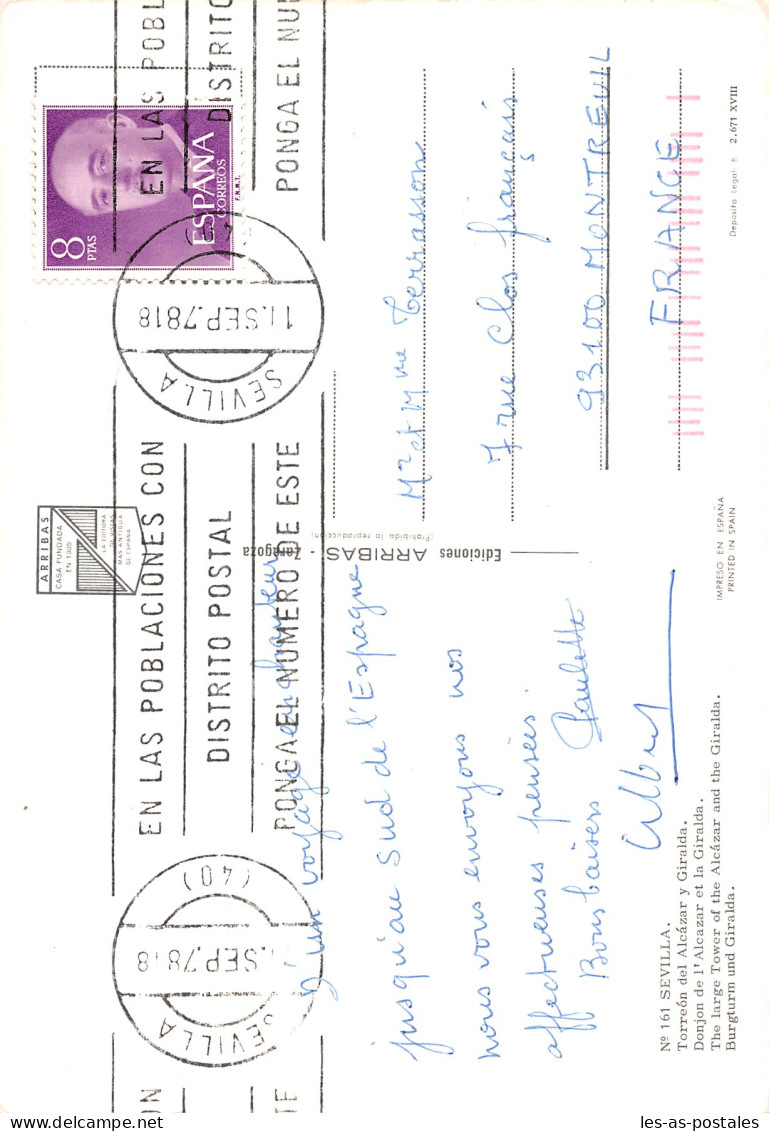 EN LAS POBLACIONES CON
DISTRITO POSTAL
PONGA EL NUMERO DE ESTE
SEVILLA
11.SEP.7818
(40)
SEVILLA
11.SEP.7818
EN LAS POBL
DISTRITO
PONGA EL NU
ON
STAL
ESTE
8
PTAS
ESPAÑA
CORREOS
F.N.M.T.
ARRIBAS
CASA FUNDADA
EN 1905
LA EDITORA
DE VISTAS
MAS ANTIGUA
DE ESPAÑA
D'un voyage en
jusqu'au sud de l'Espagne
nous vous envoyons nos
affectueuses pensées.
Bons baisers Paulette
Albert
Nº 161 SEVILLA.
Torreón del Alcázar y Giralda.
Donjon de l'Alcazar et la Giralda.
The large Tower of the Alcázar and the Giralda.
Burgturm und Giralda.
Ediciones ARRIBAS - Zaragoza
(Prohibida la reproducción)
IMPRESO EN ESPAÑA
PRINTED IN SPAIN
Mr et Mme Terrasson
7 rue Clos français
93100 MONTREUIL
FRANCE
Deposito Legal: B 2.671 XVIII
les-as-postales.com